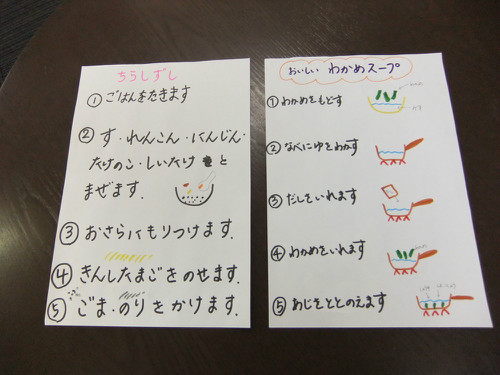 ちらしずし
① ごはんをたきます
② す・れんこん・にんじん・
たけのこ・しいたけ と
まぜます.
③ おさらにもりつけます.
④ きんしたまごをのせます.
⑤ ごま・のりをかけます.
おいしい わかめスープ
① わかめをもどす
② なべにゆをわかす
③ だしをいれます
④ わかめをいれます
⑤ あじをととのえます